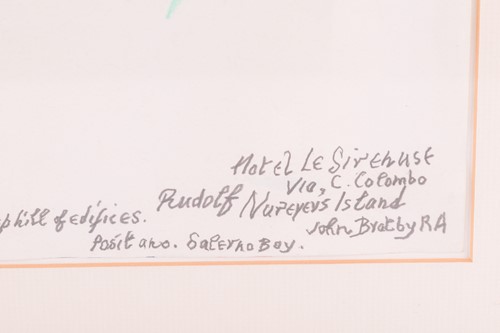 Hotel Le Sirenuse
Via, C. Colombo
Rudolf Nureyevs Island
phill of edifices.
John Bratby RA
Positano. Salerno Bay.